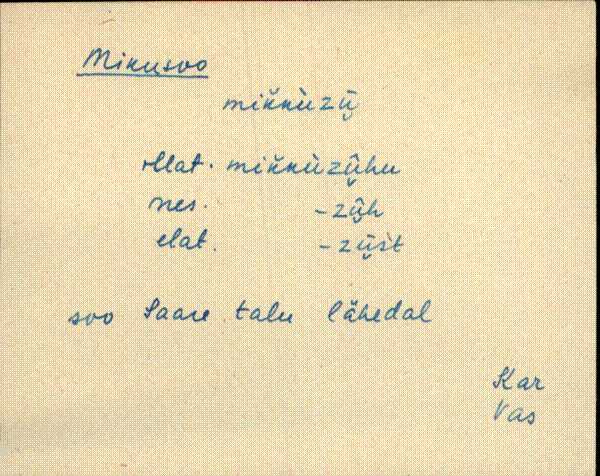 Mikusoo
mikkùzū̬
illat. mikkùzū̬hu
ines. -zū̬h
elat. -zū̬st
soo Saare talu lähedal
Kar
Vas